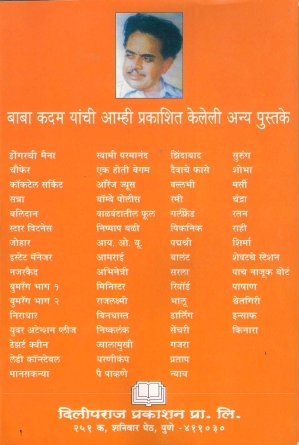 बाबा कदम यांची आम्ही प्रकाशित केलेली अन्य पुस्तके
डोंगरची मैना स्वामी परमानंद झिंदाबाद सुरुंग
चीफर एक होती बेगम दैवाचे फासे शोभा
कॉकटेल सर्किट ऑरेंज ज्यूस वल्लभी मर्सी
सत्रा बॉम्बे पोलीस रमी चंद्रा
बलिदान वाळवंटातील फूल गर्लफ्रेंड रतन
स्टार विटनेस निष्पाप बळी पिकनिक राही
जोहार आय. ओ. यू. पद्मश्री शिर्मा
इस्टेट मॅनेजर आमराई चालंट शेवटचे स्टेशन
नजरकैद अभिनेत्री सरला पाच नाजूक बोटं
बुमरँग भाग १ मिनिस्टर रिवॉर्ड पाषाण
बुमरँग भाग २ राजलक्ष्मी भालू खेतगिरी
निराधार बिनधास्त डार्लिंग इन्साफ
युवर अटेन्शन प्लीज निष्कलंक सेंचरी किनारा
डेझर्ट क्वीन ज्वालामुखी गजरा
लेडी कॉन्स्टेबल धरणीकंप प्रताप
मानसकन्या पै पाकणे न्याय
दिलीपराज प्रकाशन प्रा. लि.
२५१ क, शनिवार पेठ, पुणे - ४११०३०